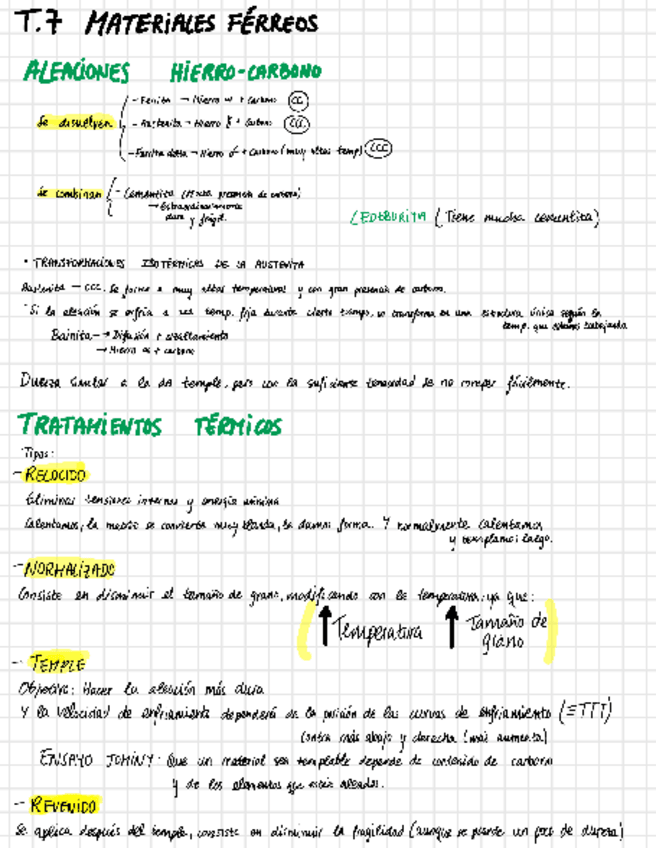 T.7 MATERIALES FÉRREOS
ALEACIONES HIERRO-CARBONO
Se disuelven
- Ferrita → Hierro α + Carbono (CC)
- Austenita → Hierro γ + Carbono (CCC)
- Ferrita delta → Hierro δ + Carbono (muy altas temp) (CCC)
Se combinan
- Cementita (Mucha presencia de carbono)
→ Extraordinariamente
dura y frágil.
LEDEBURITA (Tiene mucha cementita)
• TRANSFORMACIONES ISOTÉRMICAS DE LA AUSTENITA
Austenita — CCC. Se forma a muy altas temperaturas y con gran presencia de carbono.
Si la aleación se enfría a una temp. fija durante cierto tiempo, se transforma en una estructura única según la
temp. que estemos trabajando
Bainita → Difusión +
→ Hierro α + carbono
Dureza similar a la de temple, pero con la suficiente tenacidad de no romper fácilmente.
TRATAMIENTOS TÉRMICOS
Tipos:
- RECOCIDO
Eliminar tensiones internas y energía mínima
Calentamos, la se convierte muy blanda, la damos forma. Y normalmente calentamos
y templamos luego.
- NORMALIZADO
Consiste en disminuir el tamaño de grano, modificando con la temperatura, ya que:
↑ Temperatura ↑ Tamaño de
grano
- TEMPLE
Objetivo: Hacer la aleación más dura
Y la velocidad de enfriamiento dependerá de la posición de las curvas de enfriamiento (≡TTT)
Contra más abajo y derecha (más aumenta)
ENSAYO JOMINY: Que un material sea templable depende de contenido de carbono
y de los elementos que estén aleados.
- REVENIDO
Se aplica después del temple, consiste en disminuir la fragilidad (aunque se pierde un poco de dureza)